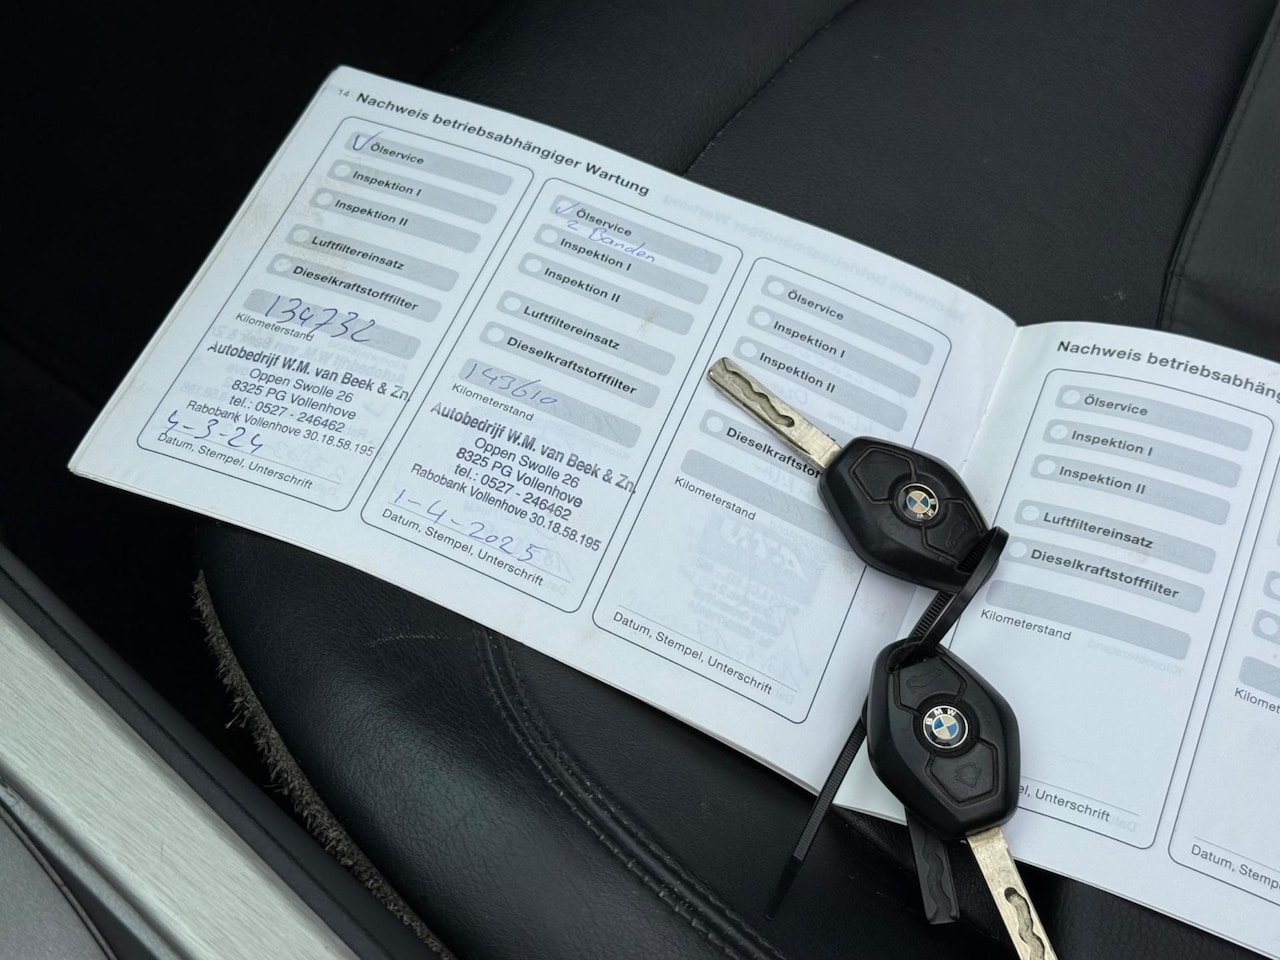 14 Nachweis betriebsabhängiger Wartung
Ölservice
Inspektion I
Inspektion II
Luftfiltereinsatz
Dieselkraftstofffilter
134732
Kilometerstand
Autobedrijf W.M. van Beek & Zn.
Oppen Swolle 26
8325 PG Vollenhove
tel.: 0527 - 246462
Rabobank Vollenhove 30.18.58.195
4-3-24
Datum, Stempel, Unterschrift
Ölservice
2 Banden
Inspektion I
Inspektion II
Luftfiltereinsatz
Dieselkraftstofffilter
143610
Kilometerstand
Autobedrijf W.M. van Beek & Zn.
Oppen Swolle 26
8325 PG Vollenhove
tel.: 0527 - 246462
Rabobank Vollenhove 30.18.58.195
1-4-2025
Datum, Stempel, Unterschrift
Ölservice
Inspektion I
Inspektion II
Dieselkraftstof
Kilometerstand
Datum, Stempel, Unterschrift
BMW
BMW
Nachweis betriebsabhäng
Ölservice
Inspektion I
Inspektion II
Luftfiltereinsatz
Dieselkraftstofffilter
Kilometerstand
el, Unterschrift
Kilomet
Datum, Stemp